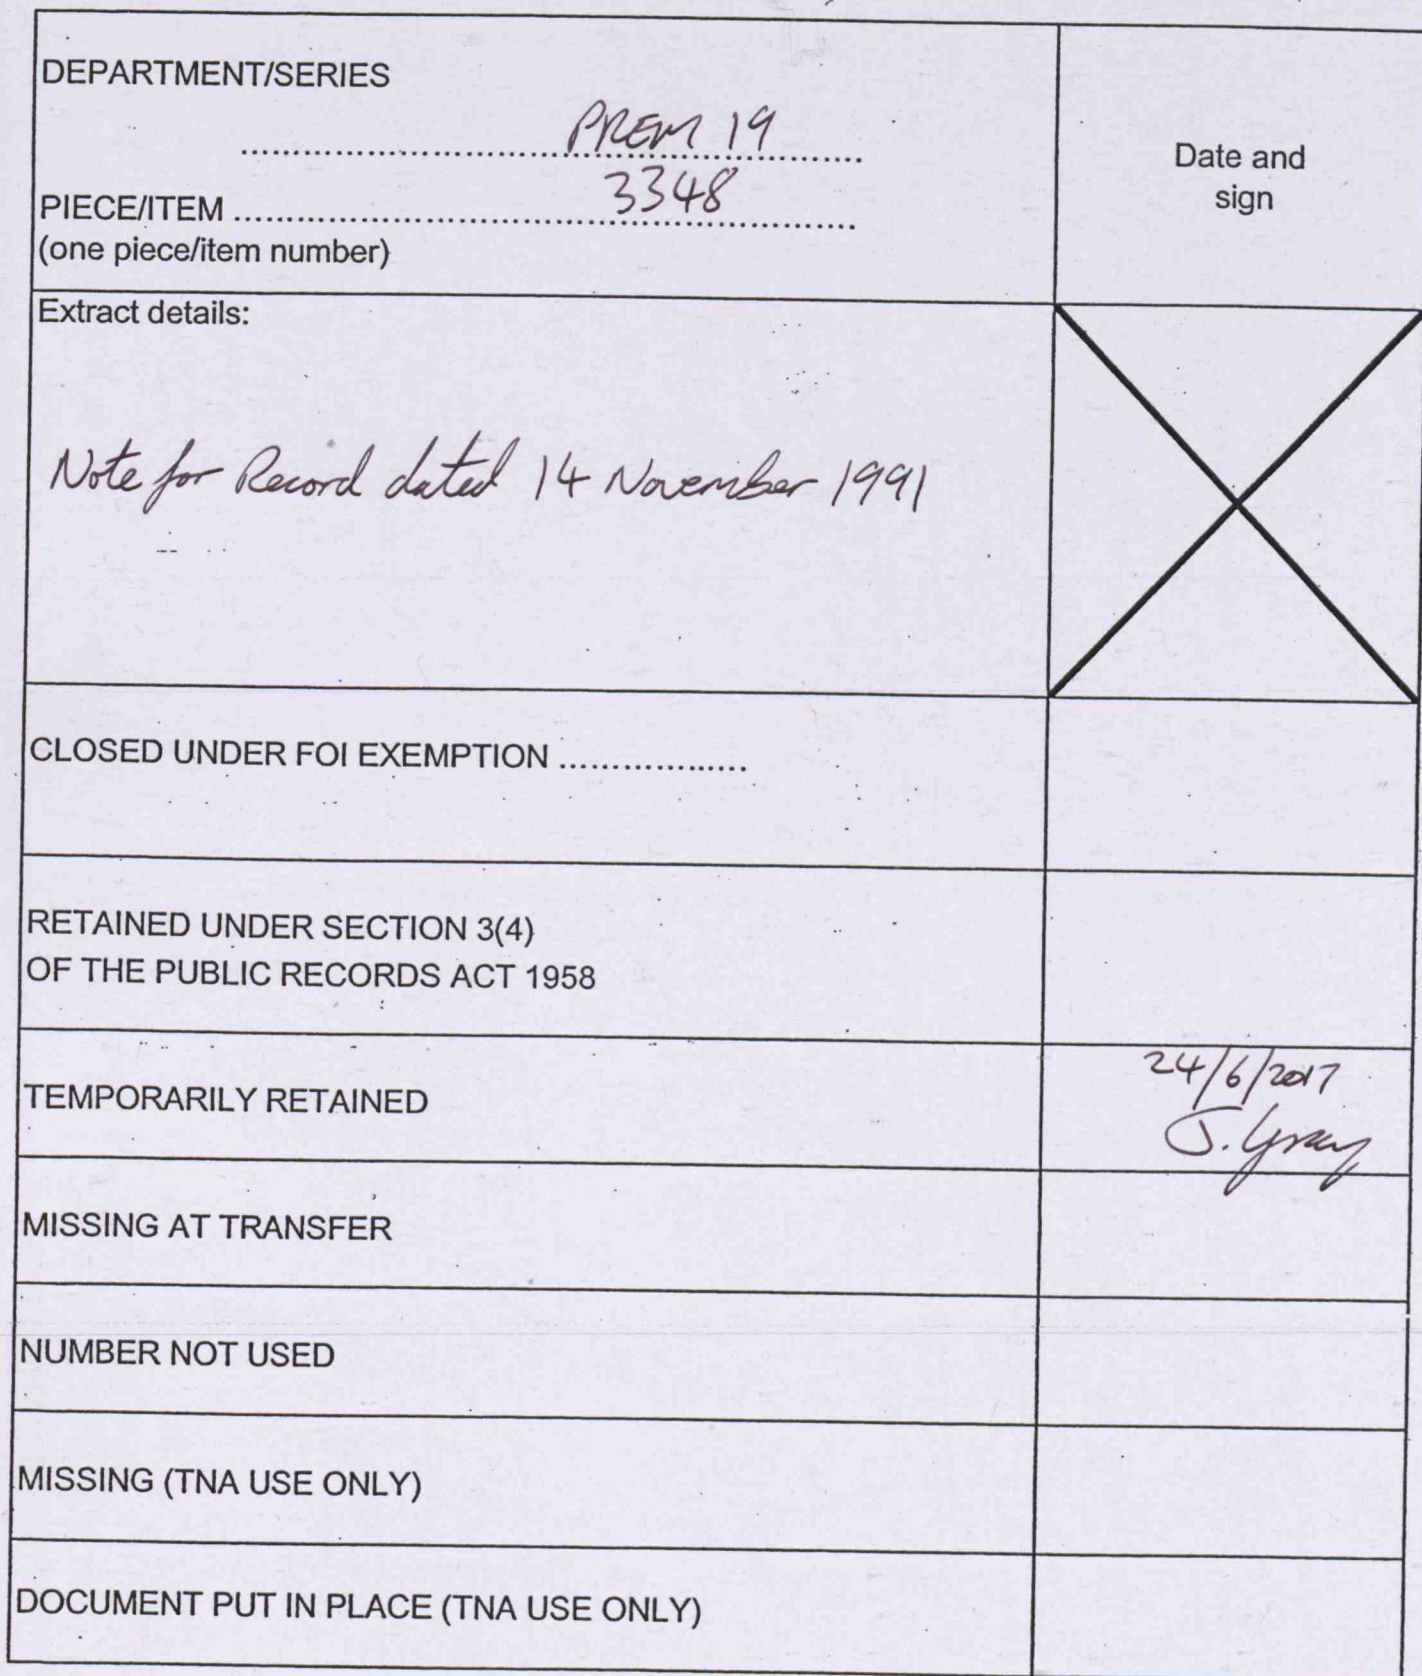 DEPARTMENT/SERIES
PREM 19
Date and
sign
PIECE/ITEM ................................................ 3348
(one piece/item number)
Extract details:
Note for Record dated 14 November 1991
CLOSED UNDER FOI EXEMPTION ..................
RETAINED UNDER SECTION 3(4)
OF THE PUBLIC RECORDS ACT 1958
TEMPORARILY RETAINED
24/6/2017
J. Gray
MISSING AT TRANSFER
NUMBER NOT USED
MISSING (TNA USE ONLY)
DOCUMENT PUT IN PLACE (TNA USE ONLY)